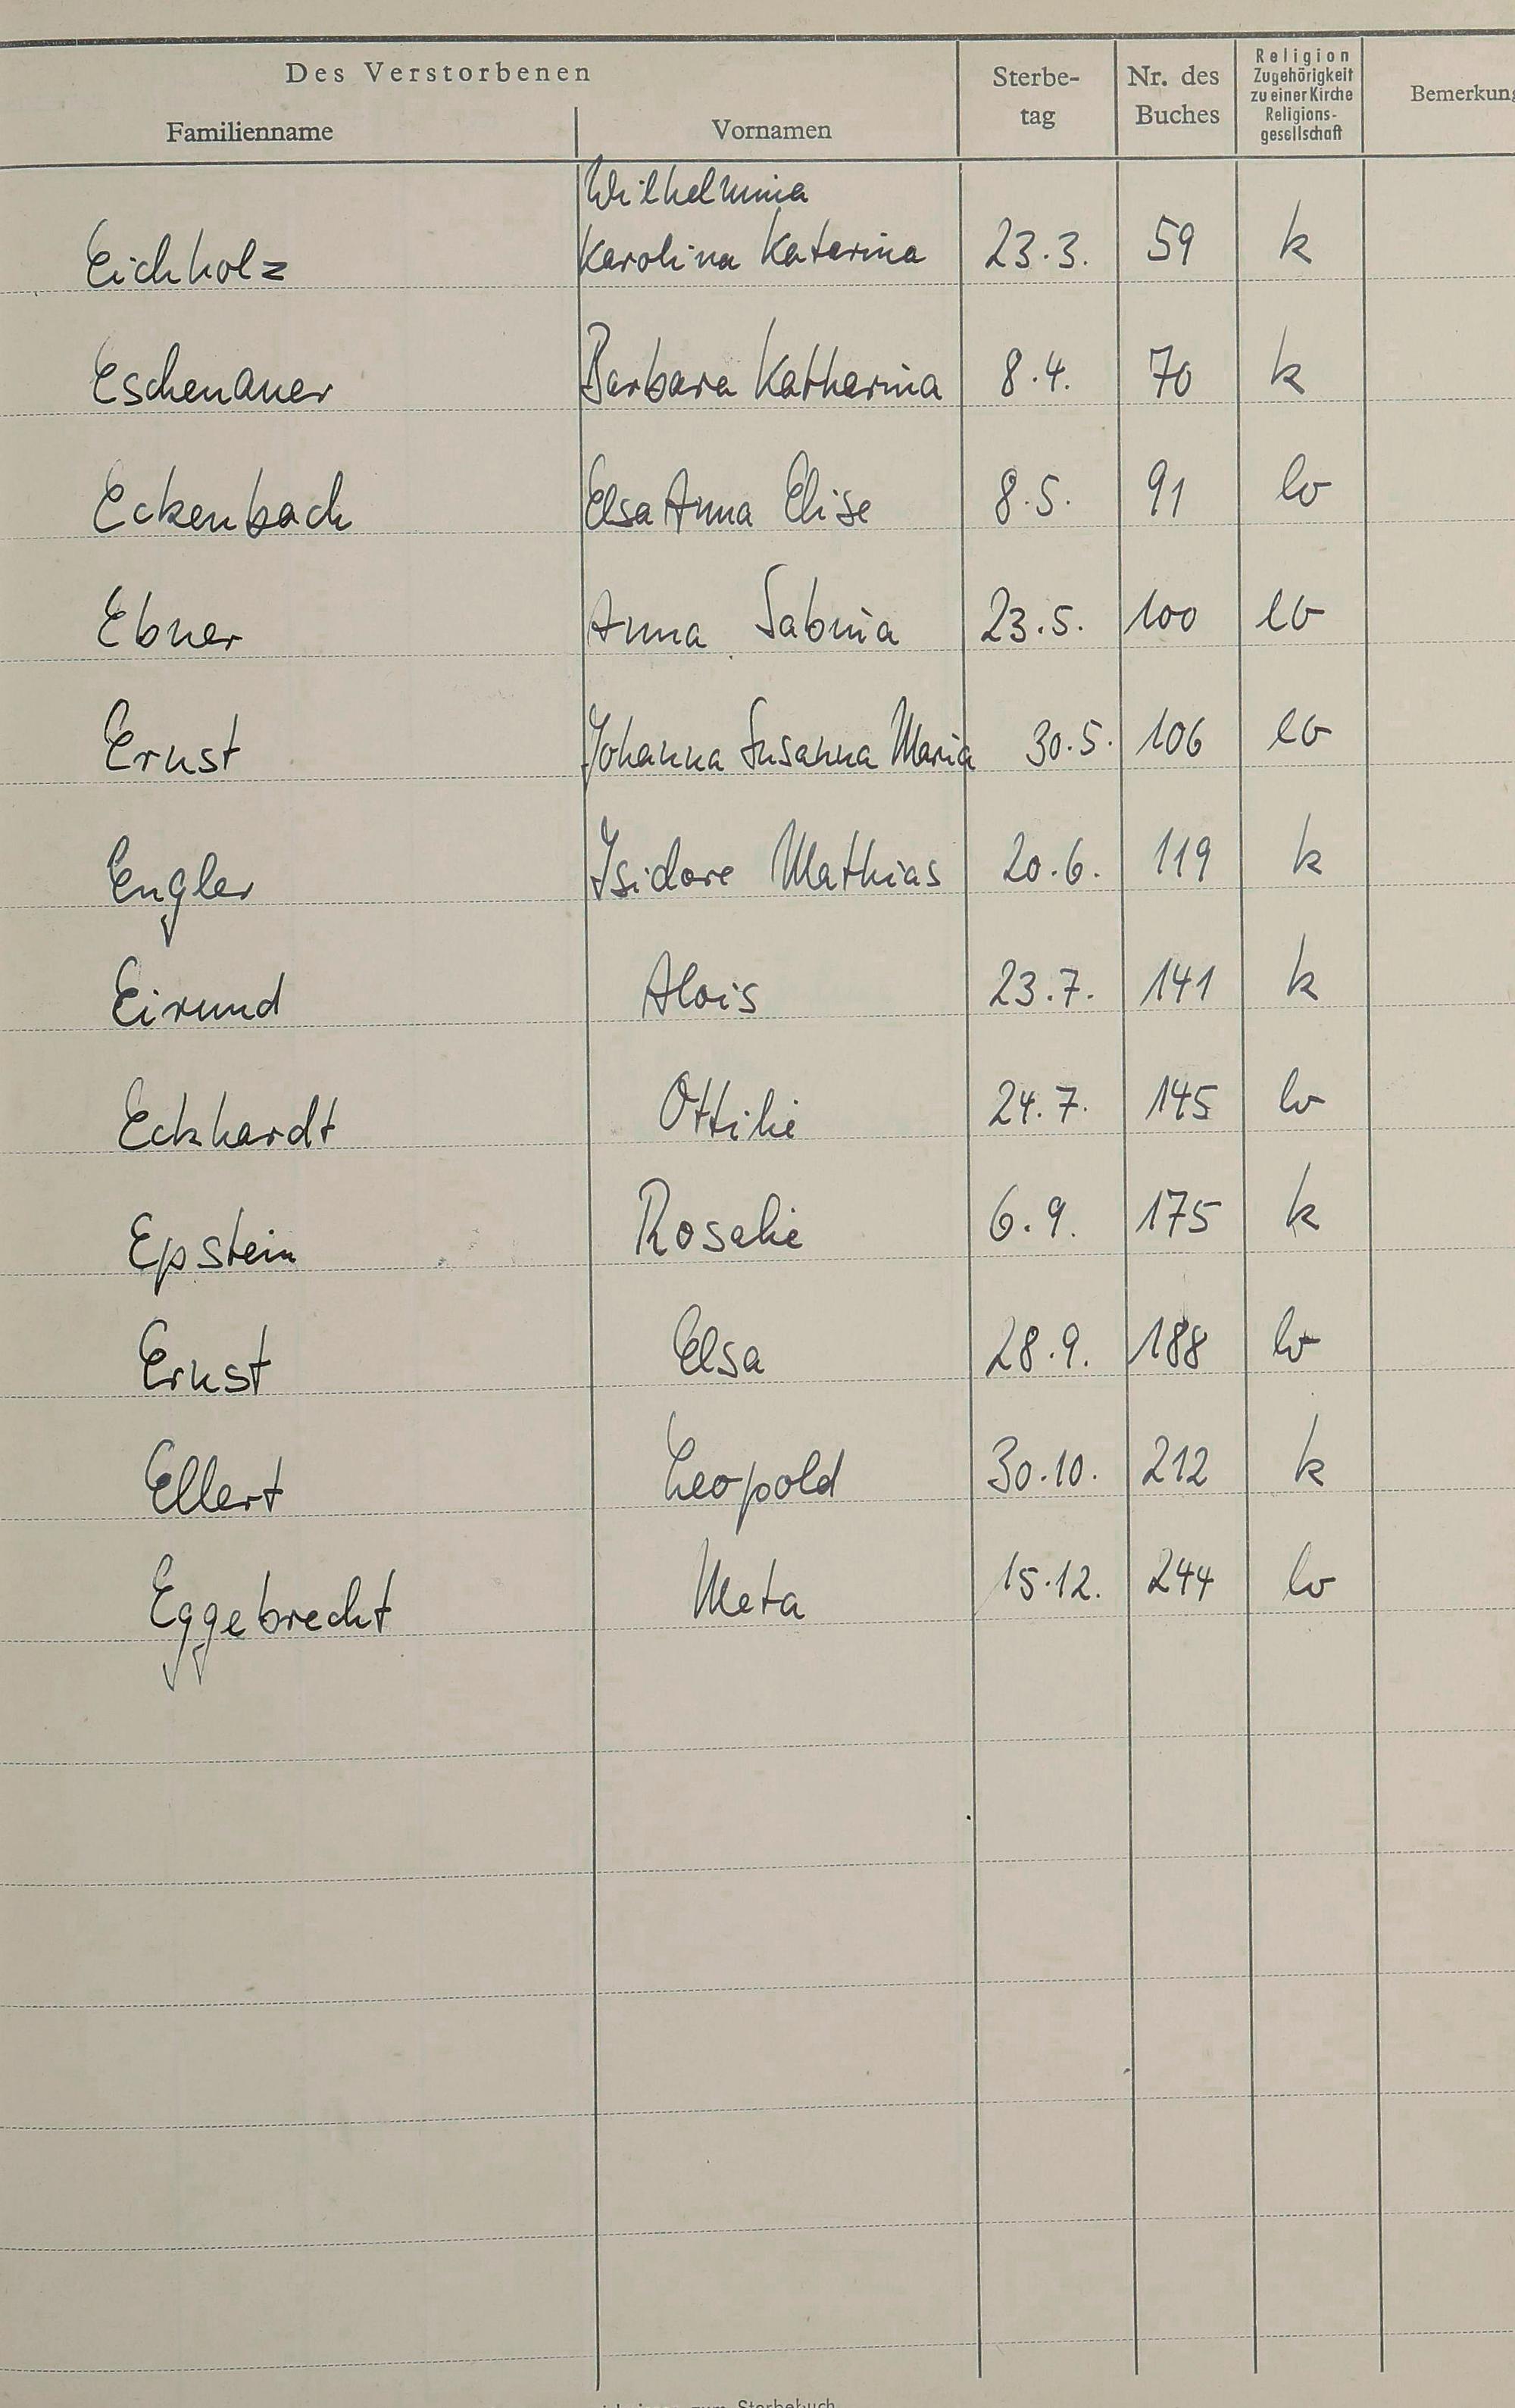 Des Verstorbenen
Familienname Vornamen Sterbe- tag Nr. des Buches Religion Zugehörigkeit zu einer Kirche Religions- gesellschaft Bemerkung
Wilhelmina
Eichholz Karolina Katarina 23.3. 59 k
Eschenauer Barbara Katharina 8.4. 70 k
Eckenbach Elsa Anna Elise 8.5. 91 ev
Ebner Anna Sabina 23.5. 100 ev
Ernst Johanna Susanna Maria 30.5. 106 ev
Engler Isidore Mathias 20.6. 119 k
Eirund Alois 23.7. 141 k
Eckhardt Ottilie 24.7. 145 ev
Epstein Rosalie 6.9. 175 k
Ernst Elsa 28.9. 188 ev
Ellert Leopold 30.10. 212 k
Eggebrecht Meta 15.12. 244 ev
zum Sterbebuch